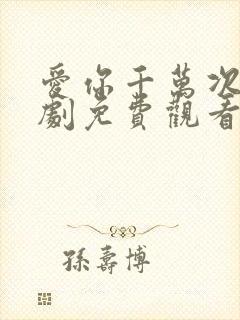 愛你千萬次
劇免費觀看
孫壽博